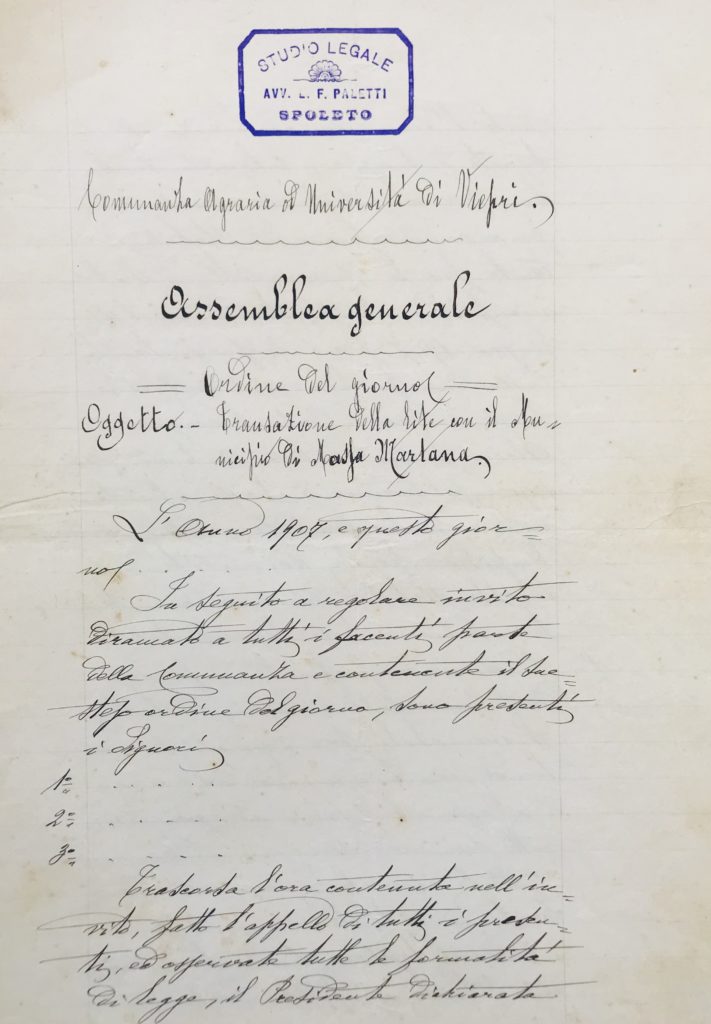 STUDIO LEGALE
AVV. L. F. PALETTI
SPOLETO
Comunanza Agraria od Università di Viepri.
Assemblea generale
Ordine del giorno
Oggetto. - Transazione della lite con il Mu=
nicipio di Massa Martana.
L'Anno 1907, e questo gior=
no . . . . .
In seguito a regolare invito
diramato a tutti i facenti parte
della Comunanza e contenente il sue=
steso ordine del giorno, sono presenti
i Signori
1º . . . . .
2º . . . . .
3º . . . . .
Trascorsa l'ora contenuta nell'in=
vito, fatto l'appello di tutti i presen=
ti, ed osservate tutte le formalità
di legge, il Presidente dichiarata